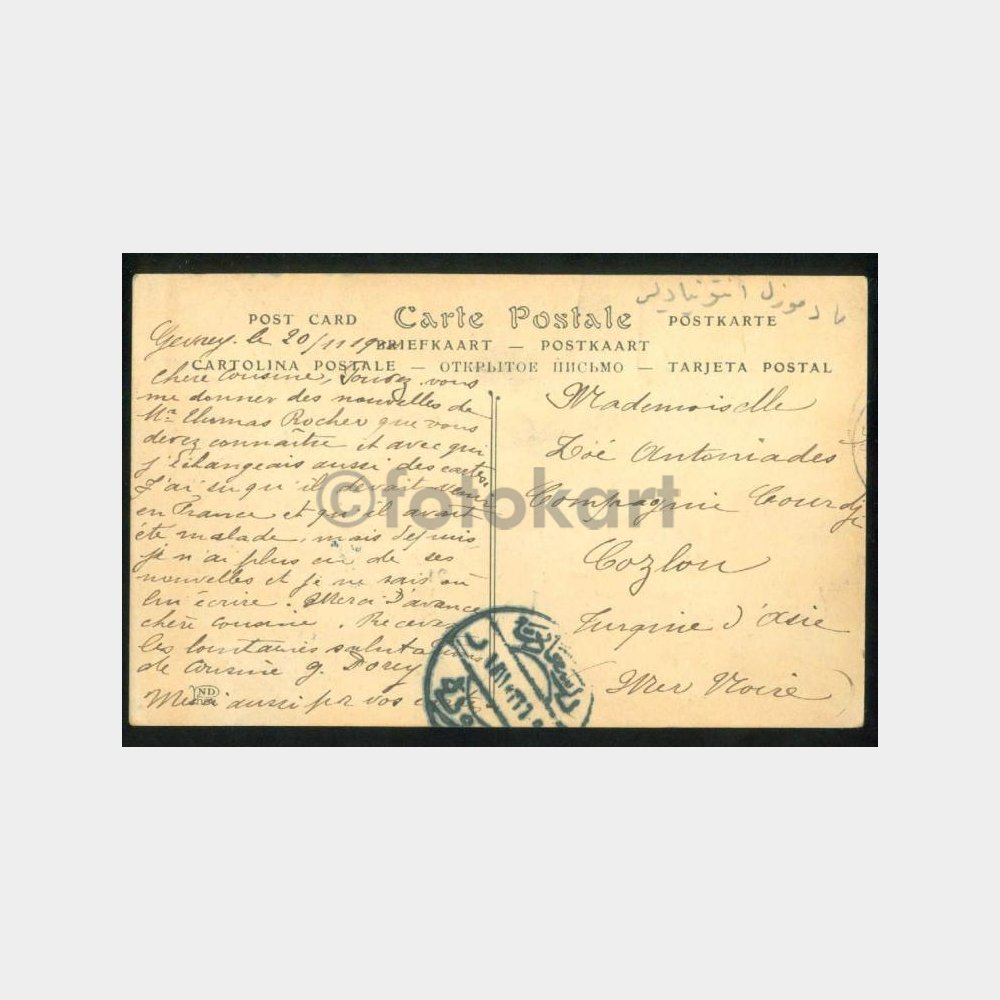 مادموزل انتونيادس
POST CARD Carte Postale POSTKARTE
BRIEFKAART — POSTKAART
CARTOLINA POSTALE — ОТКРЫТОЕ ПИСЬМО — TARJETA POSTAL
Gevrey. le 20/11 19
Chère Cousine, Pouvez vous
me donner des nouvelles de
Mr Thomas Rocher que vous
devez connaître et avec qui
j'échangeais aussi des cartes.
J'ai su qu'il devait venir
en France et qu'il avait
été malade, mais depuis
je n'ai plus eu de ses
nouvelles et je ne sais où
lui écrire. Merci d'avance
chère cousine. Recevez
les lointaines salutations
de Cousine g. Dorey
Merci aussi pr vos
ND
Mademoiselle
Zoé Antoniadès
Compagnie Courdji
Cozlou
Turquie d'Asie
Mer Noire
©fotokart